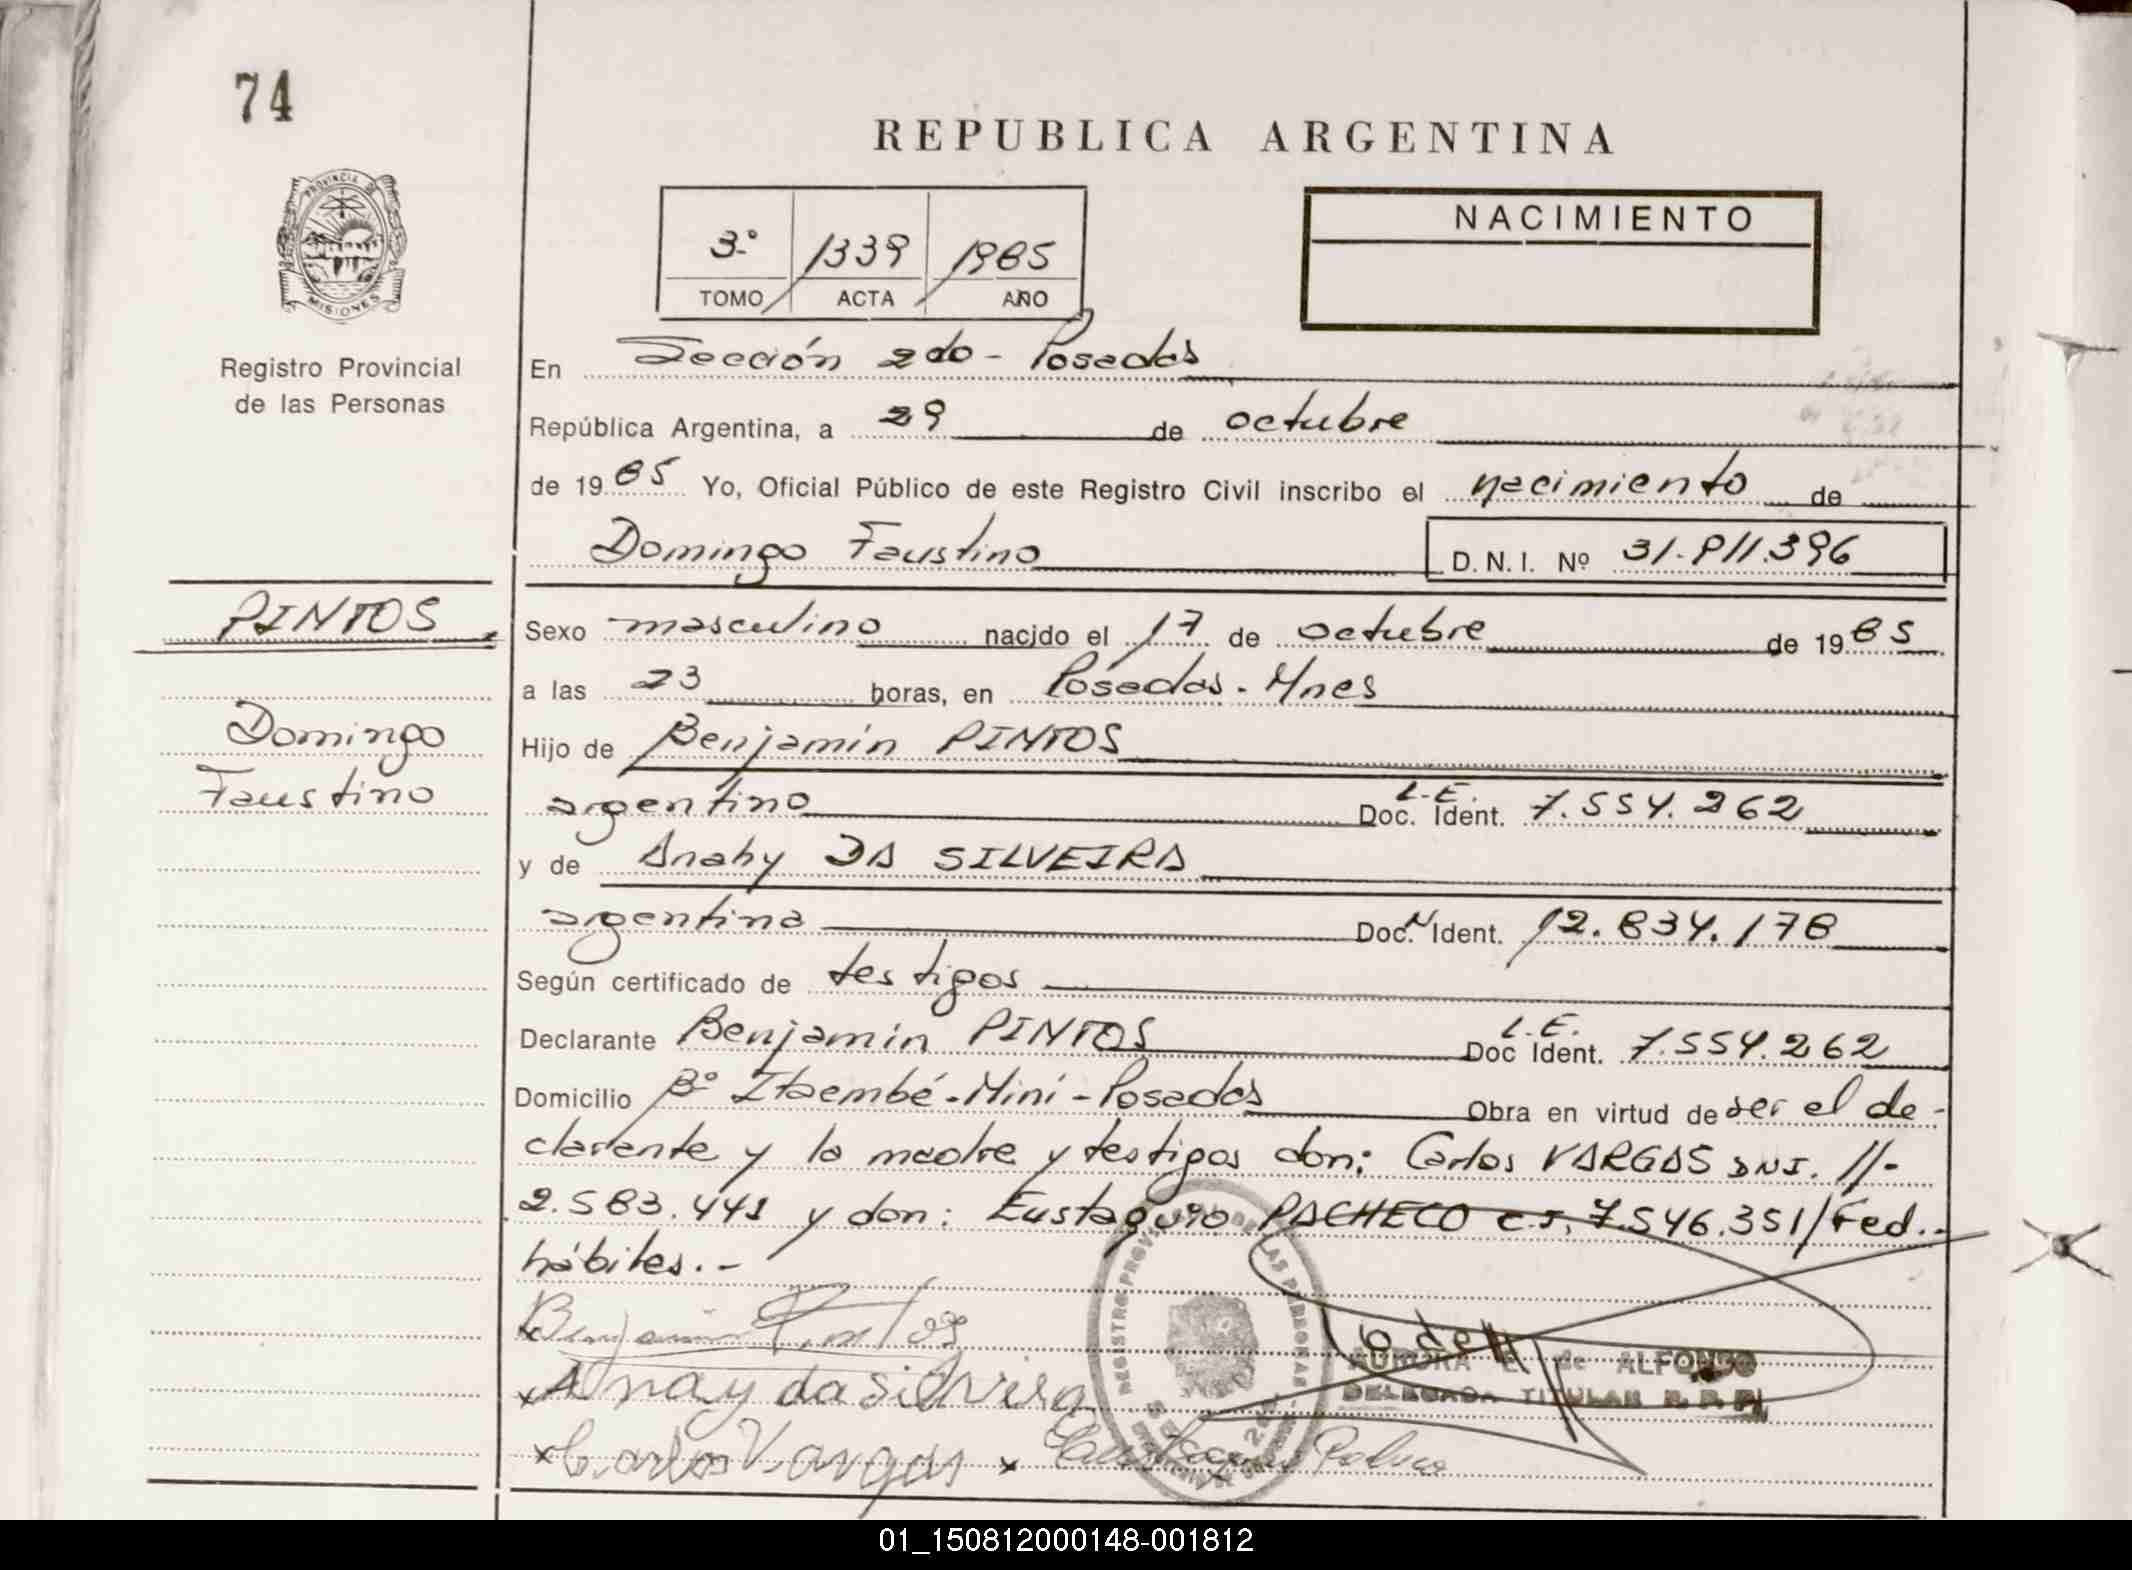 74
REPUBLICA ARGENTINA
PROVINCIA DE MISIONES
Registro Provincial
de las Personas
3º 1339 1985
TOMO ACTA AÑO
NACIMIENTO
En Sección 2do - Posadas
República Argentina, a 29 de octubre
de 1985 Yo, Oficial Público de este Registro Civil inscribo el nacimiento de
Domingo Faustino D.N.I. Nº 31.811.396
PINTOS
Domingo
Faustino
Sexo masculino nacido el 17 de octubre de 1985
a las 23 horas, en Posadas - Mnes
Hijo de Benjamín PINTOS
argentino L.E. Doc. Ident. 7.554.262
y de Anahy DA SILVEIRA
argentina Doc. Ident. 12.834.178
Según certificado de testigos
Declarante Benjamín PINTOS L.E. Doc Ident. 7.554.262
Domicilio Bº Itaembé-Miní-Posadas Obra en virtud de ser el de-
clarante y la madre y testigos don: Carlos VARGAS DNI. //-
2.583.441 y don: Eustaquio PACHECO C.I. 7.546.351/Fed.-
hábiles.-
Benjamin Pintos
x Anay da silveira
x Carlos Vargas x
REGISTRO PROVINCIAL DE LAS PERSONAS
AURORA E. de ALFONSO
DELEGADA TITULAR R.P.P.
01_150812000148-001812